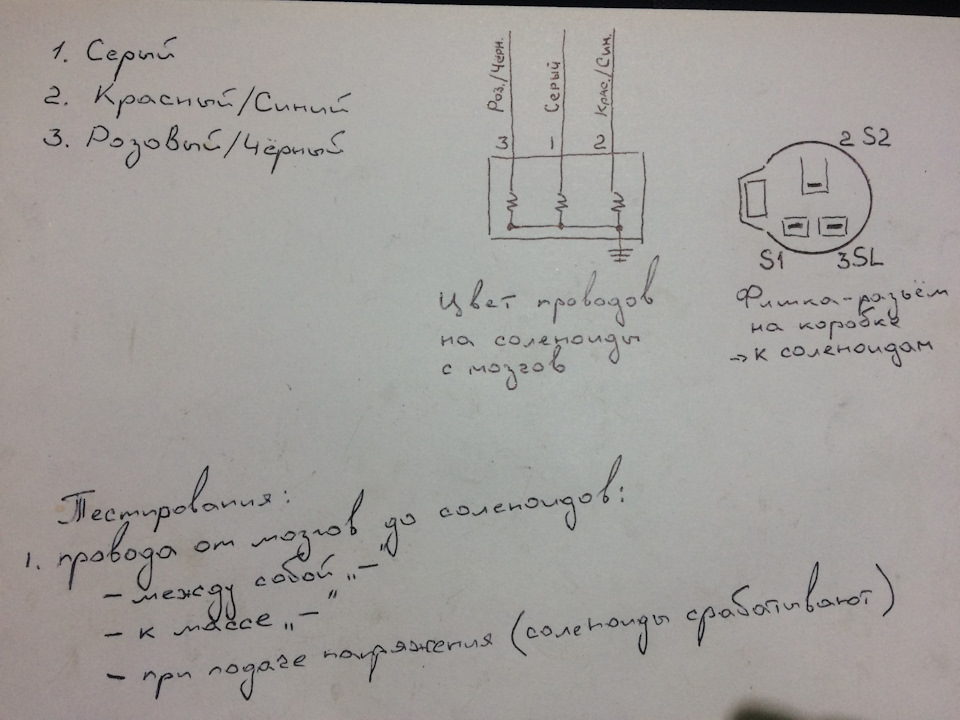 1. Серый
2. Красный/Синий
3. Розовый/Чёрный
Роз./Черн.
Серый
Крас./Син.
3 1 2
2 S2
S1 3SL
Цвет проводов
на соленоиды
с мозгов
Фишка-разъём
на коробке
→ к соленоидам
Тестирования:
1. провода от мозгов до соленоидов:
- между собой „–“
- к массе „–“
- при подаче напряжения (соленоиды срабатывают)